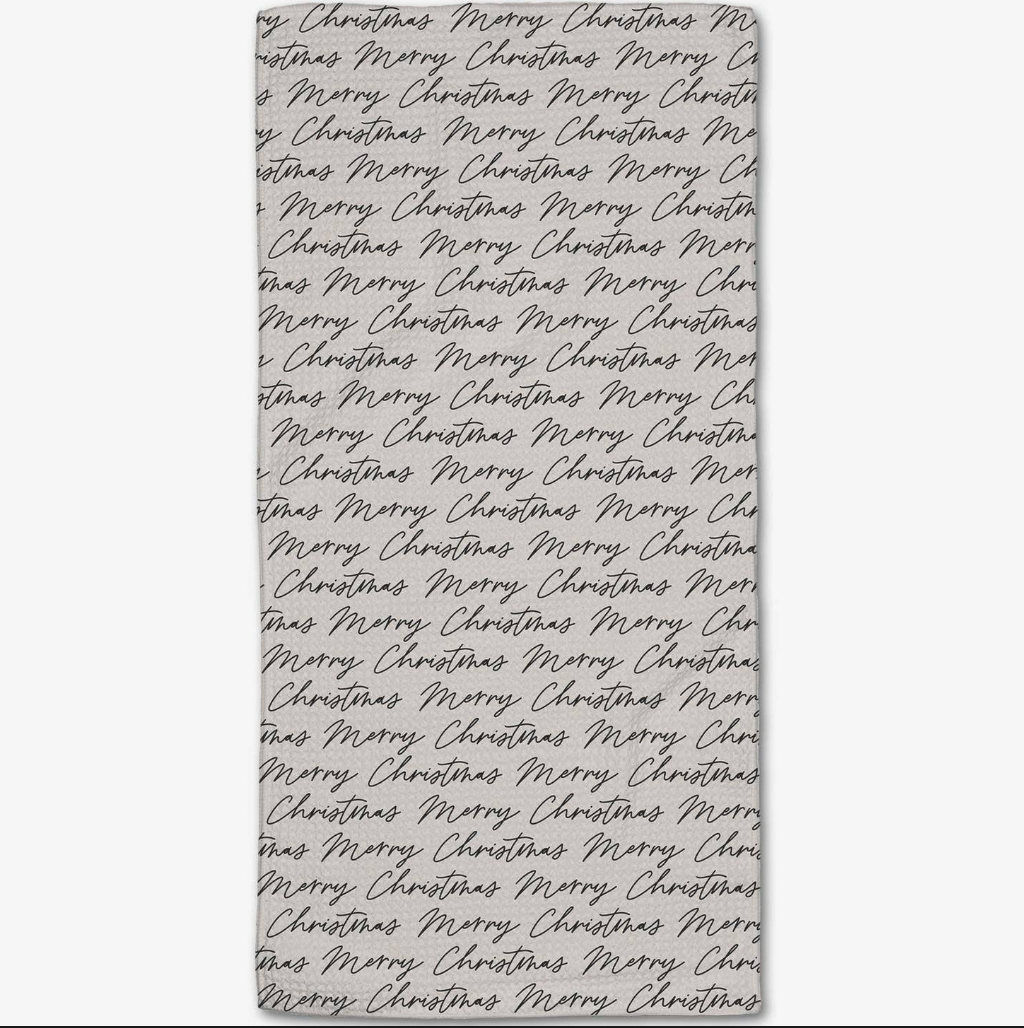 ry Christmas Merry Christmas M
ristmas Merry Christmas Merry Ch
s Merry Christmas Merry Christm
y Christmas Merry Christmas Me
istmas Merry Christmas Merry Ch
s Merry Christmas Merry Christm
Christmas Merry Christmas Merr
tmas Merry Christmas Merry Chri
Merry Christmas Merry Christmas
y Christmas Merry Christmas Mer
stmas Merry Christmas Merry Ch
Merry Christmas Merry Christma
y Christmas Merry Christmas Mer
stmas Merry Christmas Merry Chr
Merry Christmas Merry Christma
Christmas Merry Christmas Merr
tmas Merry Christmas Merry Chr
Merry Christmas Merry Christmas
Christmas Merry Christmas Merry
mas Merry Christmas Merry Chri
Merry Christmas Merry Christmas
Christmas Merry Christmas Merry
tmas Merry Christmas Merry Chris
Merry Christmas Merry Christmas
Christmas Merry Christmas Merry
tmas Merry Christmas Merry Chris
Merry Christmas Merry Christmas